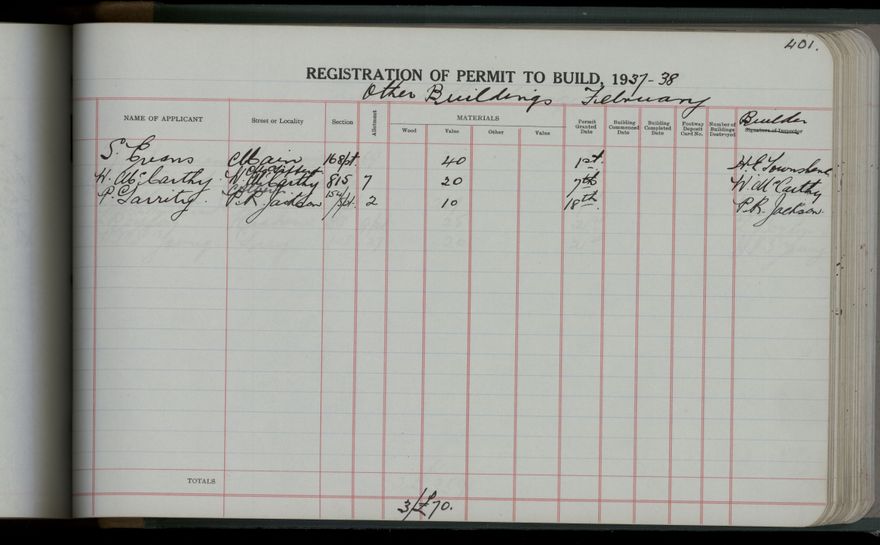 401.
REGISTRATION OF PERMIT TO BUILD, 1937-38
Other Buildings February
NAME OF APPLICANT Street or Locality Section Allotment MATERIALS Wood Value Other Value Permit Granted Date Building Commenced Date Building Completed Date Footway Deposit Card No. Number of Buildings Destroyed Builder Signature of Inspector
S. Evans Main 168 40 1st. Townsend
W. McCarthy McCarthy 815 7 20 7th W McCarthy
P. Garrity P.R. Jackson 2 10 18th. P.R. Jackson
TOTALS
3/£70.